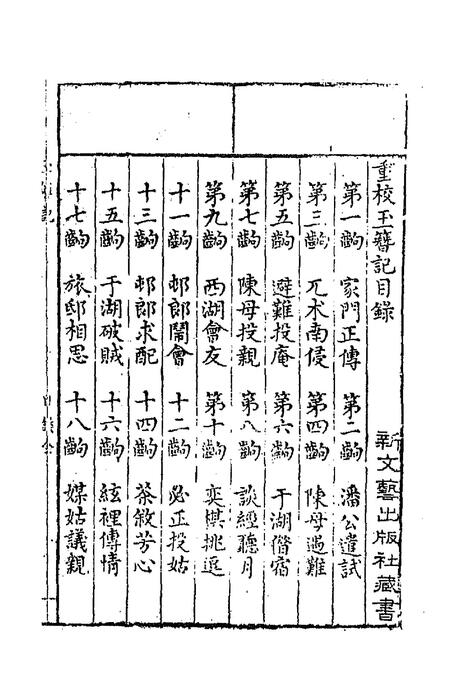 重校玉簪記目錄
第一齣 家門正傳 第二齣 潘公遣試
第三齣 兀术南侵 第四齣 陳母遇難
第五齣 避難投庵 第六齣 于湖借宿
第七齣 陳母投親 第八齣 談經聽月
第九齣 西湖會友 第十齣 奕棋挑逗
十一齣 邨郎鬧會 十二齣 必正投姑
十三齣 邨郎求配 十四齣 茶敘芳心
十五齣 于湖破賊 十六齣 絃裡傳情
十七齣 旅邸相思 十八齣 媒姑議親
新文藝出版社藏書